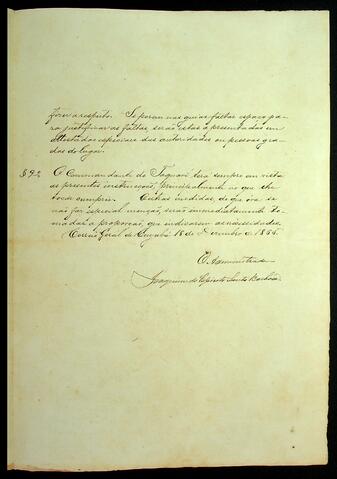 fizer a respeito. Se porem nas guias faltar espaço pa-
ra justificar as faltas, serão estas apresentadas em
attestados especiaes das autoridades ou pessoas gra-
das do lugar.
§ 9º O Commandante do Taquari terá sempre em vista
as presentes instrucções, principalmente no que lhe
toca cumprir. Outras medidas, de que ora se
não faz especial menção, serão immediatamente to-
madas a proporção, que indicarem as necessidades.
Correio Geral de Cuyabá 18 de 1864.
O Administrador
Joaquim do Espirito Santo Barbosa